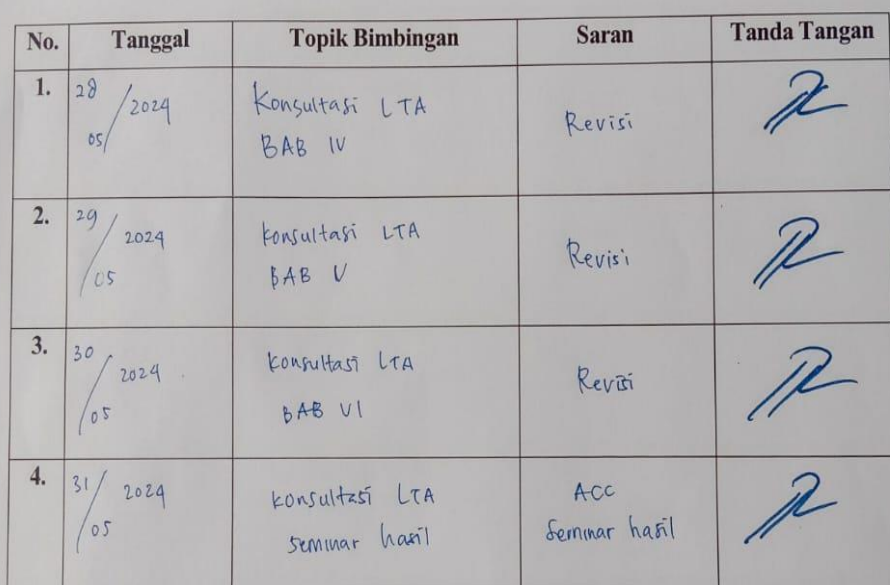 No. Tanggal Topik Bimbingan Saran Tanda Tangan
1. 28/05 2024 Konsultasi LTA BAB IV Revisi
2. 29/05 2024 Konsultasi LTA BAB V Revisi
3. 30/05 2024 Konsultasi LTA BAB VI Revisi
4. 31/05 2024 Konsultasi LTA Seminar hasil ACC Seminar hasil